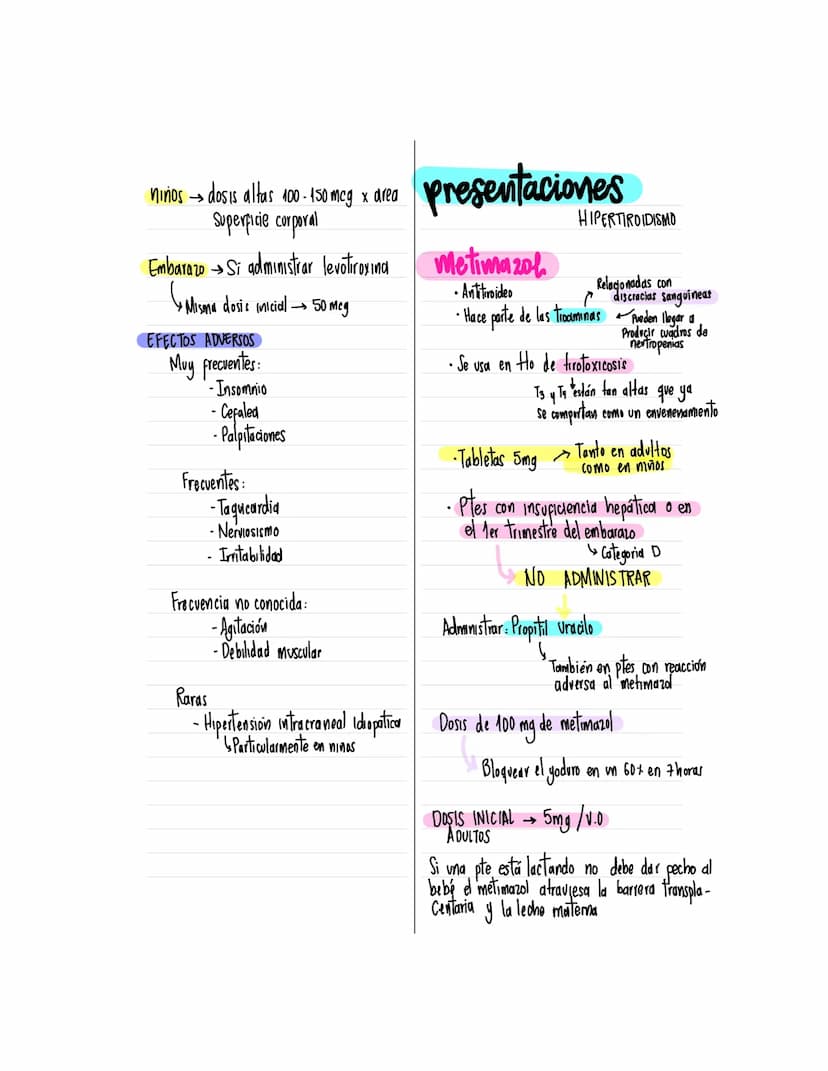 niños → dosis altas 100-150 mcg x area
Superficie corporal
Embarazo → Si administrar levotiroxina
Misma dosis inicial → 50 mcg
EFECTOS ADVERSOS
Muy frecuentes:
- Insomnio
- Cefalea
- Palpitaciones
Frecuentes:
- Taquicardia
- Nerviosismo
- Irritabilidad
Frecuencia no conocida:
- Agitación
- Debilidad muscular
Raras
- Hipertensión intracraneal Idiopática
↳ Particularmente en niños
presentaciones
HIPERTIROIDISMO
Metimazol
· Antitiroideo
Relacionadas con
discracias sanguineas
· Hace parte de las tioaminas
Pueden llegar a
Producir cuadros de
neutropenias
· Se usa en tto de tirotoxicosis
T3 y T4 están tan altas que ya
se comportan como un envenenamiento
· Tabletas 5mg → Tanto en adultos
como en niños
· Ptes con insuficiencia hepática o en
el 1er trimestre del embarazo
↳ Categoria D
NO ADMINISTRAR
Administrar: Propitil uracilo
También en ptes con reacción
adversa al metimazol
Dosis de 100 mg de metimazol
Bloquear el yoduro en un 60% en 7 horas
DOSIS INICIAL → 5mg / V.O
ADULTOS
Si una pte está lactando no debe dar pecho al
bebé el metimazol atraviesa la barrera transpla-
centaria y la leche materna